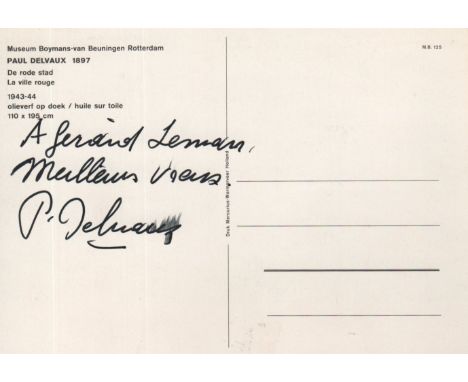 Museum Boymans-van Beuningen Rotterdam
PAUL DELVAUX 1897
De rode stad
La ville rouge
1943-44
olieverf op doek / huile sur toile
110 x 195 cm
A Gérard Leman,
Meilleurs Vœux
P. Delvaux
N.B. 125
Druk Mercurius-Wormerveer Holland